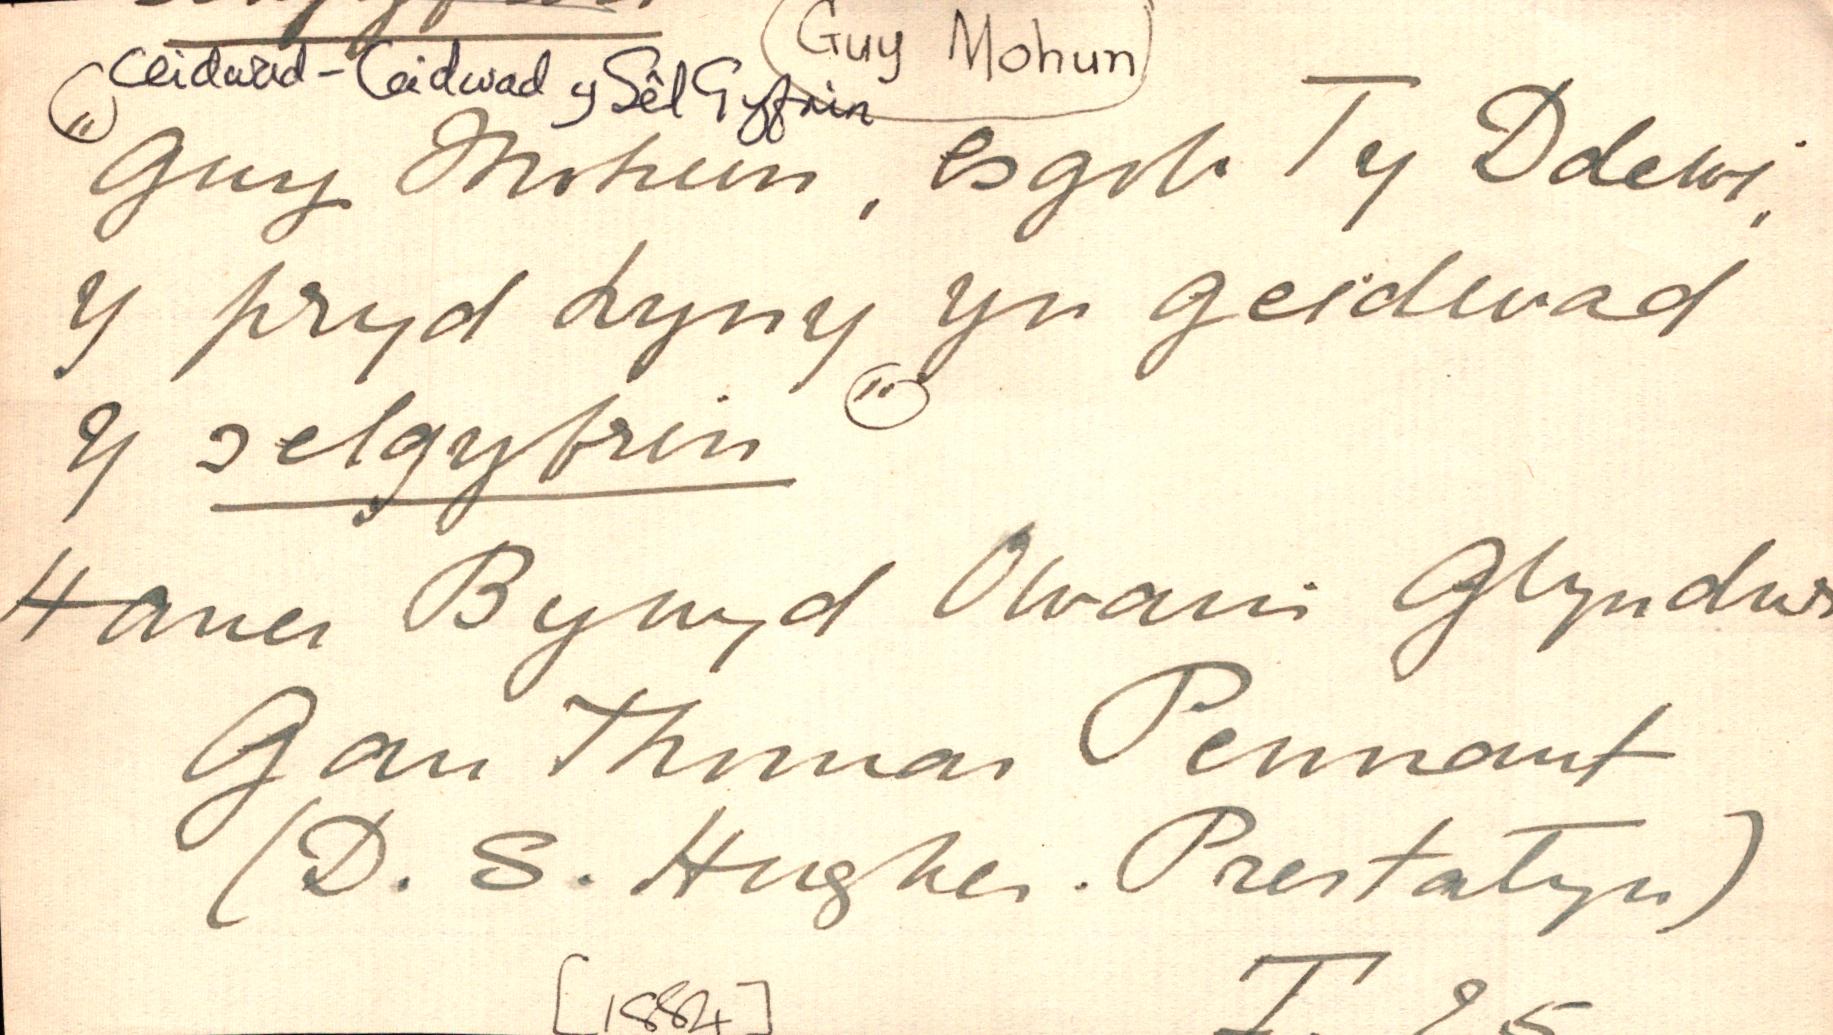 Guy Mohun
Ceidwad - Ceidwad y Sêl Gyfrin
" Guy Mohun, esgob Ty Ddewi,
y pryd hyny yn geidwad
y selgyfrin "
Hanes Bywyd Owain Glyndwr
Gan Thomas Pennant
(D. S. Hughes. Prestatyn)
[1884] T. 25